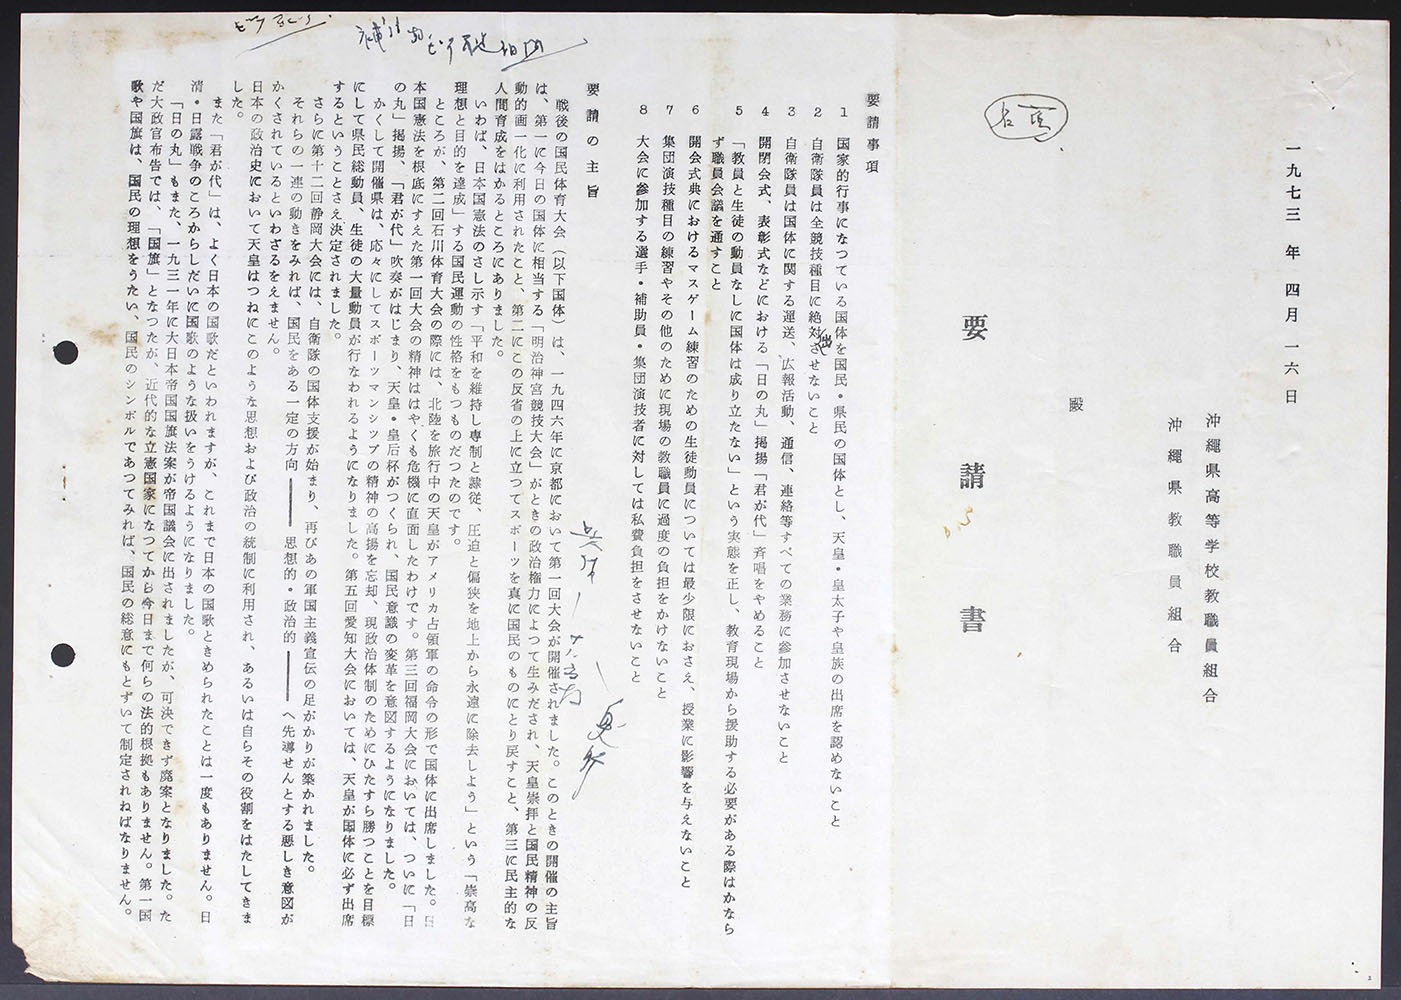 一九七三年四月一六日
沖縄県高等学校教職員組合
沖縄県教職員組合
殿
要請書
要請事項
1 国家的行事になつている国体を国民・県民の国体とし、天皇・皇太子や皇族の出席を認めないこと
2 自衛隊員は全競技種目に絶対させないこと
3 自衛隊員は国体に関する運送、広報活動、通信、連絡等すべての業務に参加させないこと
4 開閉会式、表彰式などにおける「日の丸」掲揚「君が代」斉唱をやめること
5 「教員と生徒の動員なしに国体は成り立たない」という実態を正し、教育現場から援助する必要がある際はかなら
ず職員会議を通すこと
6 開会式典におけるマスゲーム練習のための生徒動員については最少限におさえ、授業に影響を与えないこと
7 集団演技種目の練習やその他のために現場の教職員に過度の負担をかけないこと
8 大会に参加する選手・補助員・集団演技者に対しては私費負担をさせないこと
要請の主旨
戦後の国民体育大会（以下国体）は、一九四六年に京都において第一回大会が開催されました。このときの開催の主旨
は、第一に今日の国体に相当する「明治神宮競技大会」がときの政治権力によつて生みだされ、天皇崇拝と国民精神の反
動的画一化に利用されたこと、第二にこの反省の上に立つてスポーツを真に国民のものにとり戻すこと、第三に民主的な
人間育成をはかるところにありました。
いわば、日本国憲法のさし示す「平和を維持し専制と隷従、圧迫と偏狭を地上から永遠に除去しよう」という「崇高な
理想と目的を達成」する国民運動の性格をもつものだつたのです。
ところが、第二回石川体育大会の際には、北陸を旅行中の天皇がアメリカ占領軍の命令の形で国体に出席しました。日
本国憲法を根底にすえた第一回大会の精神ははやくも危機に直面したわけです。第三回福岡大会においては、ついに「日
の丸」掲揚、「君が代」吹奏がはじまり、天皇・皇后杯がつくられ、国民意識の変革を意図するようになりました。
かくして開催県は、応々にしてスポーツマンシップの精神の高揚を忘却、現政治体制のためにひたすら勝つことを目標
にして県民総動員、生徒の大量動員が行なわれるようになりました。第五回愛知大会においては、天皇が国体に必ず出席
するということさえ決定されました。
さらに第十二回静岡大会には、自衛隊の国体支援が始まり、再びあの軍国主義宣伝の足がかりが築かれました。
それらの一連の動きをみれば、国民をある一定の方向――思想的・政治的――へ先導せんとする悪しき意図が
かくされているといわざるをえません。
日本の政治史において天皇はつねにこのような思想および政治の統制に利用され、あるいは自らその役割をはたしてきま
した。
また「君が代」は、よく日本の国歌だといわれますが、これまで日本の国歌ときめられたことは一度もありません。日
清・日露戦争のころからしだいに国歌のような扱いをうけるようになりました。
「日の丸」もまた、一九三一年に大日本帝国国旗法案が帝国議会に出されましたが、可決できず廃案となりました。た
だ大政官布告では、「国旗」となつたが、近代的な立憲国家になつてから今日まで何らの法的根拠もありません。第一国
歌や国旗は、国民の理想をうたい、国民のシンボルであつてみれば、国民の総意にもとずいて制定されねばなりません。